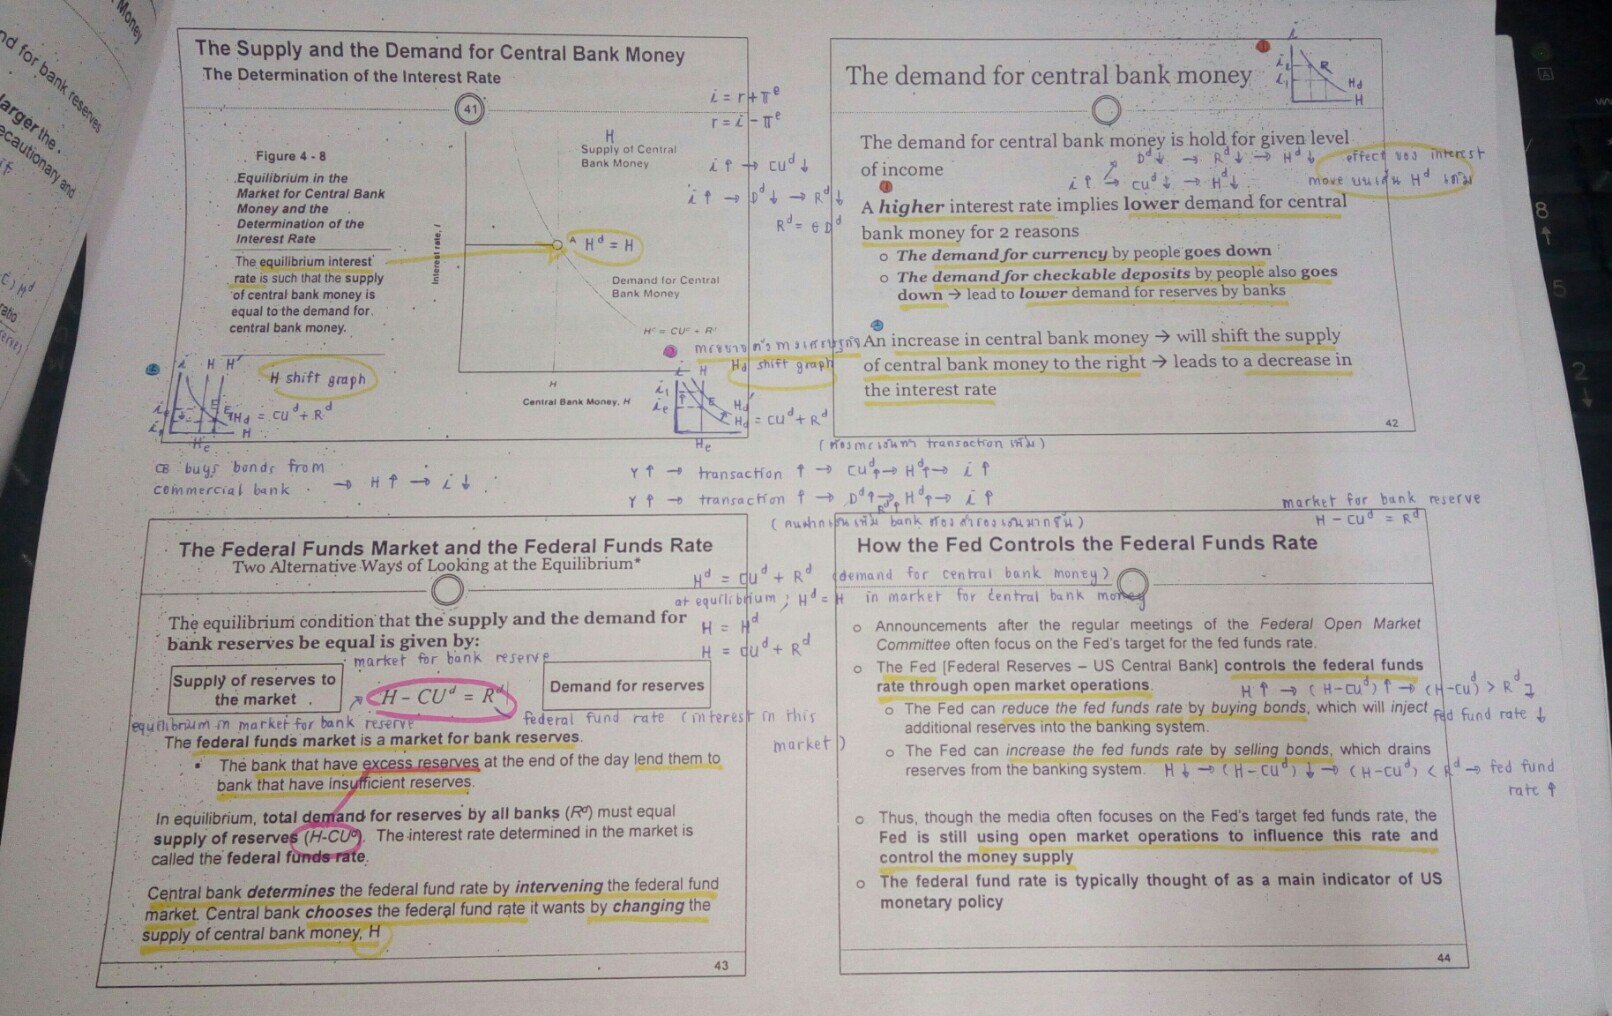 Money
nd for bank reserves
larger the
ecautionary and
The Supply and the Demand for Central Bank Money
The Determination of the Interest Rate
41
i = r + πᵉ
r = i − πᵉ
Figure 4 - 8
Equilibrium in the
Market for Central Bank
Money and the
Determination of the
Interest Rate
The equilibrium interest
rate is such that the supply
of central bank money is
equal to the demand for
central bank money.
H
Supply of Central
Bank Money
i ↑ → CUᵈ ↓
i ↑ → Dᵈ ↓ → Rᵈ ↓
Rᵈ = θ Dᵈ
Interest rate, i
A Hᵈ = H
Demand for Central
Bank Money
H
Central Bank Money, H
i H H'
H shift graph
Hd = CUᵈ + Rᵈ
H
He
Hd shift graph
i H
i₁
ie
E
Hd'
Hd = CUᵈ + Rᵈ
He
CB buys bonds from
commercial bank → H ↑ → i ↓
The demand for central bank money
i
i₂
i₁
Hd
H
The demand for central bank money is hold for given level
of income
Dᵈ ↓ → Rᵈ ↓ → Hᵈ ↓
i ↑ → CUᵈ ↓ → Hᵈ ↓
effect ของ interest
move บนเส้น Hᵈ เดิม
A higher interest rate implies lower demand for central
bank money for 2 reasons
o The demand for currency by people goes down
o The demand for checkable deposits by people also goes
down → lead to lower demand for reserves by banks
An increase in central bank money → will shift the supply
of central bank money to the right → leads to a decrease in
the interest rate
42
Y ↑ → transaction ↑ → CUᵈ ↑ → Hᵈ ↑ → i ↑
Y ↑ → transaction ↑ → Dᵈ ↑ → Hᵈ ↑ → i ↑
Rᵈ ↑
market for bank reserve
H − CUᵈ = Rᵈ
The Federal Funds Market and the Federal Funds Rate
Two Alternative Ways of Looking at the Equilibrium*
Hᵈ = CUᵈ + Rᵈ (demand for central bank money)
at equilibrium ; Hᵈ = H in market for central bank money
H = Hᵈ
H = CUᵈ + Rᵈ
The equilibrium condition that the supply and the demand for
bank reserves be equal is given by:
market for bank reserve
Supply of reserves to
the market
H − CUᵈ = Rᵈ
Demand for reserves
equilibrium in market for bank reserve
federal fund rate (interest in this
market)
The federal funds market is a market for bank reserves.
• The bank that have excess reserves at the end of the day lend them to
bank that have insufficient reserves.
In equilibrium, total demand for reserves by all banks (Rᵈ) must equal
supply of reserves (H-CUᵈ). The interest rate determined in the market is
called the federal funds rate.
Central bank determines the federal fund rate by intervening the federal fund
market. Central bank chooses the federal fund rate it wants by changing the
supply of central bank money, H
43
How the Fed Controls the Federal Funds Rate
o Announcements after the regular meetings of the Federal Open Market
Committee often focus on the Fed's target for the fed funds rate.
o The Fed [Federal Reserves – US Central Bank] controls the federal funds
rate through open market operations.
H ↑ → (H-CUᵈ) ↑ → (H-CUᵈ) > Rᵈ
fed fund rate ↓
o The Fed can reduce the fed funds rate by buying bonds, which will inject
additional reserves into the banking system.
o The Fed can increase the fed funds rate by selling bonds, which drains
reserves from the banking system.
H ↓ → (H-CUᵈ) ↓ → (H-CUᵈ) < Rᵈ → fed fund
rate ↑
o Thus, though the media often focuses on the Fed's target fed funds rate, the
Fed is still using open market operations to influence this rate and
control the money supply
o The federal fund rate is typically thought of as a main indicator of US
monetary policy
44